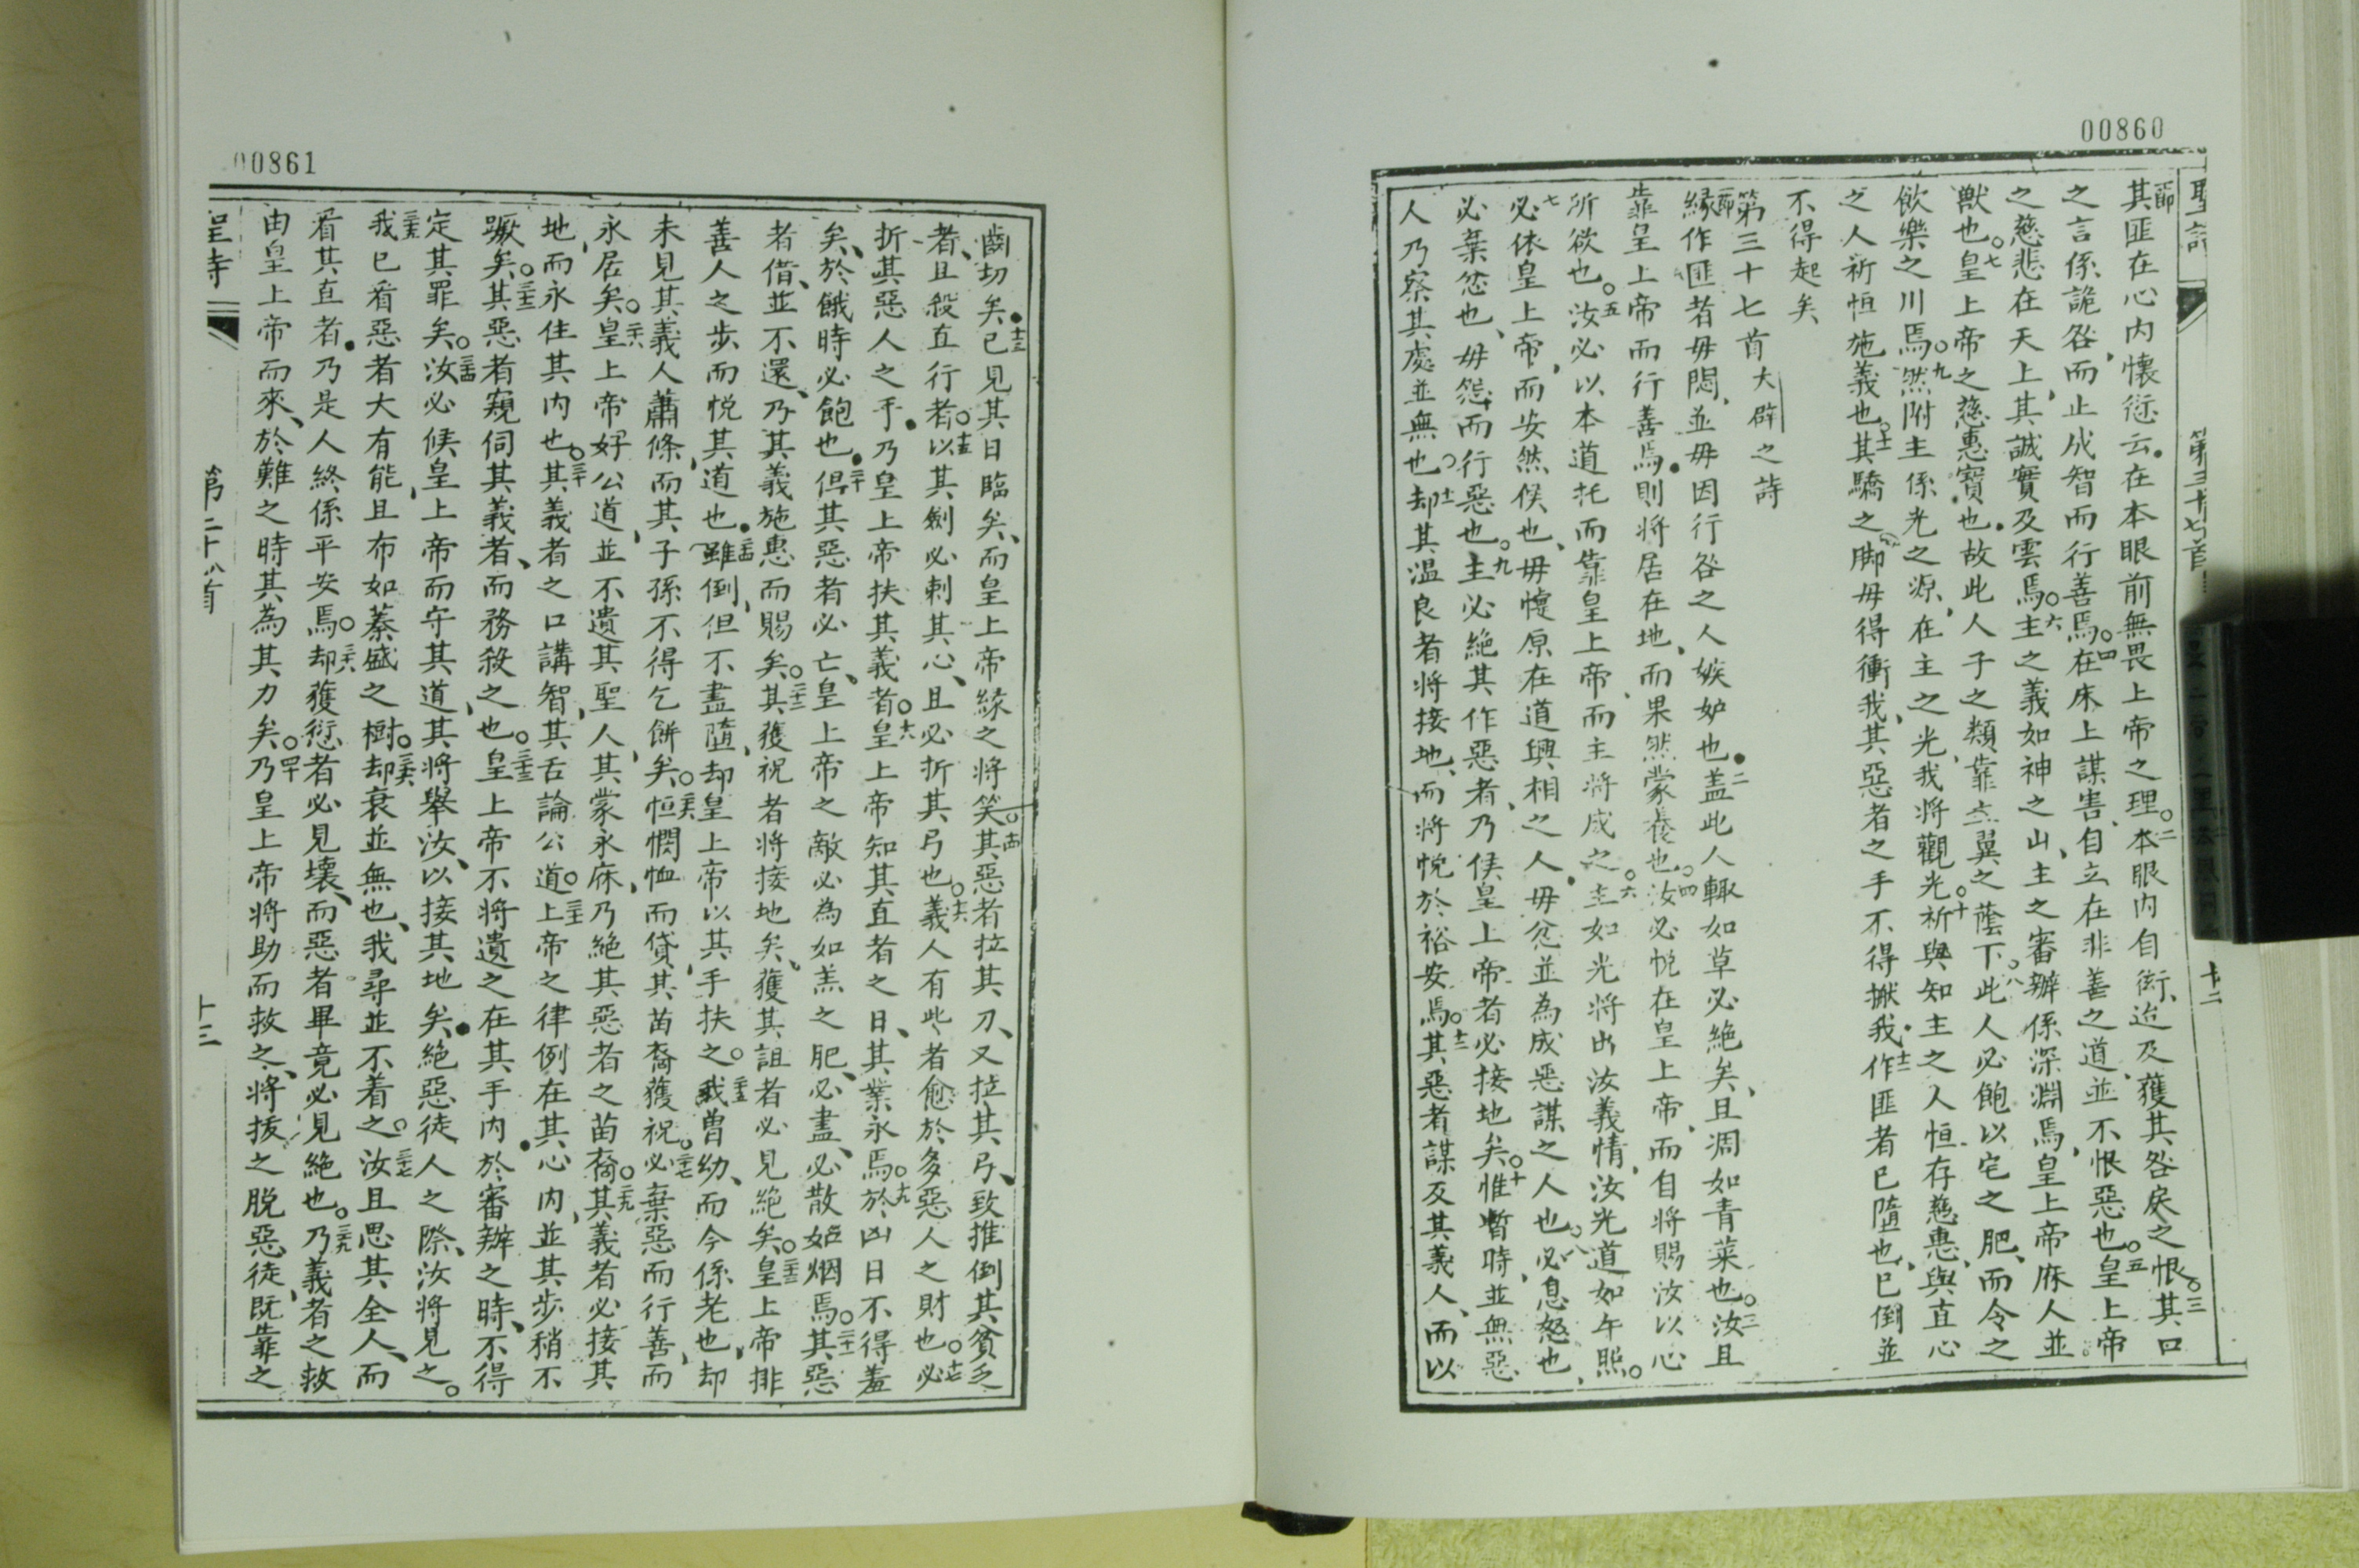 00860
聖詩
第三十七首
十二
其匪在心内懷愆云在本眼前無畏上帝之理二本眼内自衒迨及獲其咎戾之恨三其口
之言係詭咎而止成智而行善焉四在床上謀害自立在非善之道並不恨惡也五皇上帝
之慈悲在天上其誠實及雲焉六主之義如神之山主之審辦係深淵焉皇上帝庥人並
獸也七皇上帝之慈惠寶也故此人子之類靠主翼之蔭下八此人必飽以宅之肥而令之
飲樂之川焉九然附主係光之源在主之光我將觀光十祈與知主之人恒存慈惠與直心
之人祈恒施義也十一其驕之脚毋得衝我其惡者之手不得揪我十二作匪者已隨也已倒並
不得起矣
第三十七首大辟之詩
節緣作匪者毋悶並毋因行咎之人嫉妒也二盖此人輙如草必絶矣且凋如青菜也三汝且
靠皇上帝而行善焉則將居在地而果然蒙養也四汝必悅在皇上帝而自將賜汝以心
所欲也五汝必以本道托而靠皇上帝而主將成之六主如光將出汝義情汝光道如午照
七必依皇上帝而安然候也毋懥原在道興相之人毋忿並為成惡謀之人也八必息怒也
必棄忿也毋怨而行惡也九主必絶其作惡者乃候皇上帝者必接地矣十惟暫時並無惡
人乃察其處並無也十一却其温良者將接地而將悅於裕安焉十二其惡者謀及其義人而以
00861
齒切矣十三已見其日臨矣而皇上帝緣之將笑十四其惡者拉其刀又拉其弓致推倒其貧乏
者且殺直行者十五以其劍必刺其心且必折其弓也十六義人有此者愈於多惡人之財也十七必
折其惡人之手乃皇上帝扶其義者十八皇上帝知其直者之日其業永焉十九於凶日不得羞
矣於餓時必飽也二十但其惡者必亡皇上帝之敵必為如羔之肥必盡必散如烟焉二十一其惡
者借並不還乃其義施惠而賜矣二十二其獲祝者將接地矣獲其詛者必見絶矣二十三皇上帝排
善人之步而悅其道也二十四雖倒但不盡隨却皇上帝以其手扶之二十五我曽幼而今係老也却
未見其義人蕭條而其子孫不得乞餅矣二十六恒憫恤而貸其苗裔獲祝二十七必棄惡而行善而
永居矣二十八皇上帝好公道並不遺其聖人其蒙永庥乃絶其惡者之苗裔二十九其義者必接其
地而永住其内也三十其義者之口講智其舌論公道三十一上帝之律例在其心内並其步稍不
蹶矣三十二其惡者窺伺其義者而務殺之也三十三皇上帝不將遺之在其手内於審辦之時不得
定其罪矣三十四汝必候皇上帝而守其道其將舉汝以接其地矣絶惡徒人之際汝將見之
三十五我已看惡者大有能且布如蓁盛之樹三十六却衰並無也我尋並不着之三十七汝且思其全人而
看其直者乃是人終係平安焉三十八却獲愆者必見壞而惡者畢竟必見絶也三十九乃義者之救
由皇上帝而來於難之時其為其力矣四十乃皇上帝將助而救之將拔之脫惡徒既靠之
聖詩
第三十八首
十三